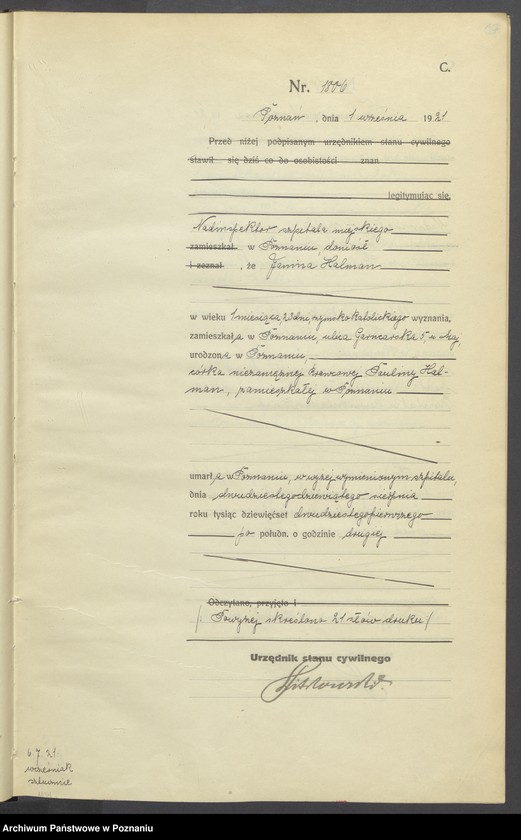 C.
Nr. 1806
Poznań, dnia 1 września 1921
Przed niżej podpisanym urzędnikiem stanu cywilnego
stawił się dziś co do osobistości znan
legitymując się,
Nadinspektor szpitala miejskiego
zamieszkał w Poznaniu doniósł
i zeznał, że Janina Halman
w wieku 1 miesiąca, 23 dni, rzymsko katolickiego wyznania,
zamieszkała w Poznaniu, ulica Garncarska 5,
urodzona w Poznaniu,
córka niezamężnej Pauliny Hal-
man, zamieszkałej w Poznaniu
umarła w Poznaniu, w wyżej wymienionym szpitalu,
dnia dwudziestego dziewiątego sierpnia
roku tysiąc dziewięćset dwudziestego pierwszego
po połudn. o godzinie drugiej
Odczytano, przyjęto i
/: Powyżej skreślono 21 słów druku /
Urzędnik stanu cywilnego
6.7.21.
Archiwum Państwowe w Poznaniu